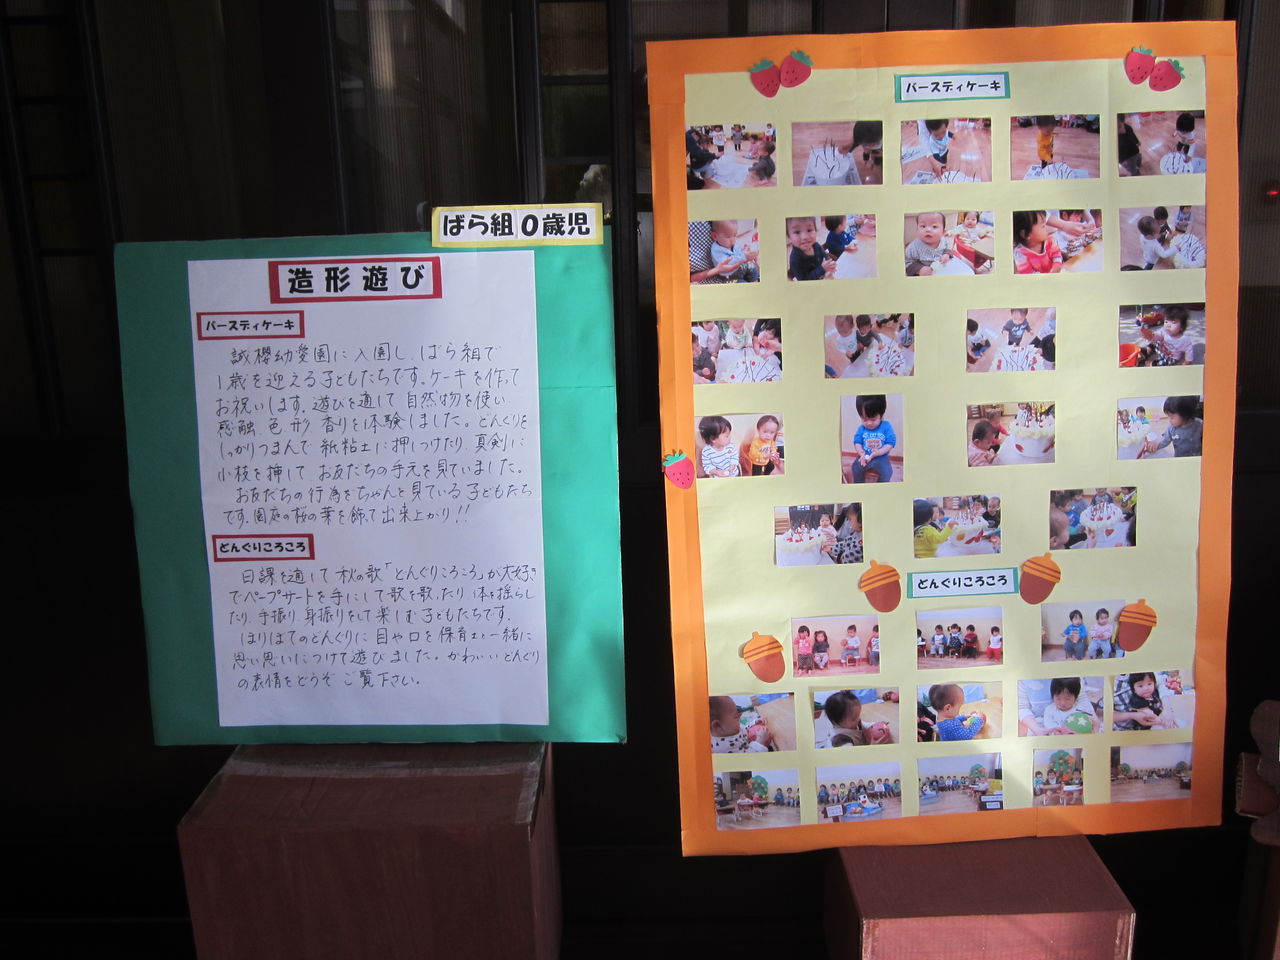 ばら組 0歳児
造形遊び
バースディケーキ
誠櫻幼愛園に入園し、ばら組で
1歳を迎える子どもたちです。ケーキを作って
お祝いします。遊びを通して自然物を使い
感触、色、形、香りを体験しました。どんぐりを
しっかりつまんで紙粘土に押しつけたり、真剣に
小枝を挿して、お友だちの手元を見ていました。
お友だちの行為をちゃんと見ている子どもたち
です。園庭の桜の葉を飾って出来上がり!!
どんぐりころころ
日課を通して秋の歌「どんぐりころころ」が大好き
でペープサートを手にして歌を歌ったり体を揺らし
たり、手振り、身振りをして楽しむ子どもたちです。
はりぼてのどんぐりに目や口を保育士と一緒に
思い思いにつけて遊びました。かわいいどんぐり
の表情をどうぞご覧下さい。
バースディケーキ
どんぐりころころ